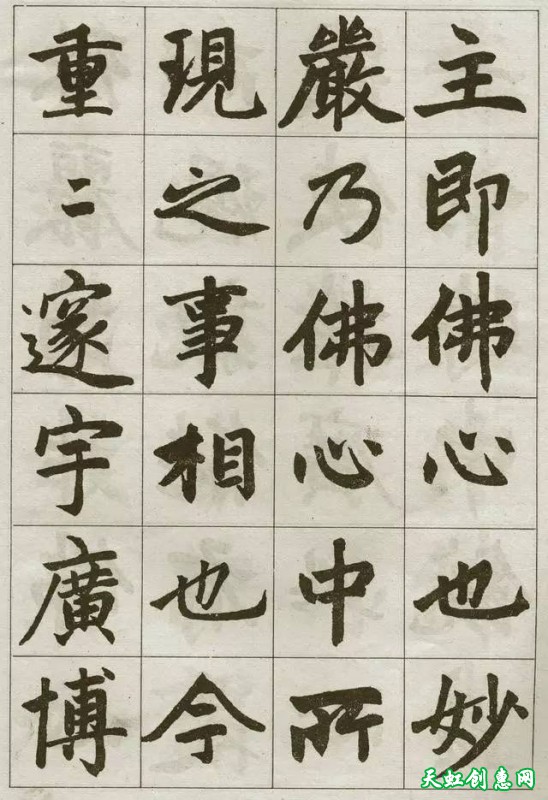 主即佛心也妙
嚴乃佛心中所
現之事相也今
重二邃宇廣博
天虹创惠网